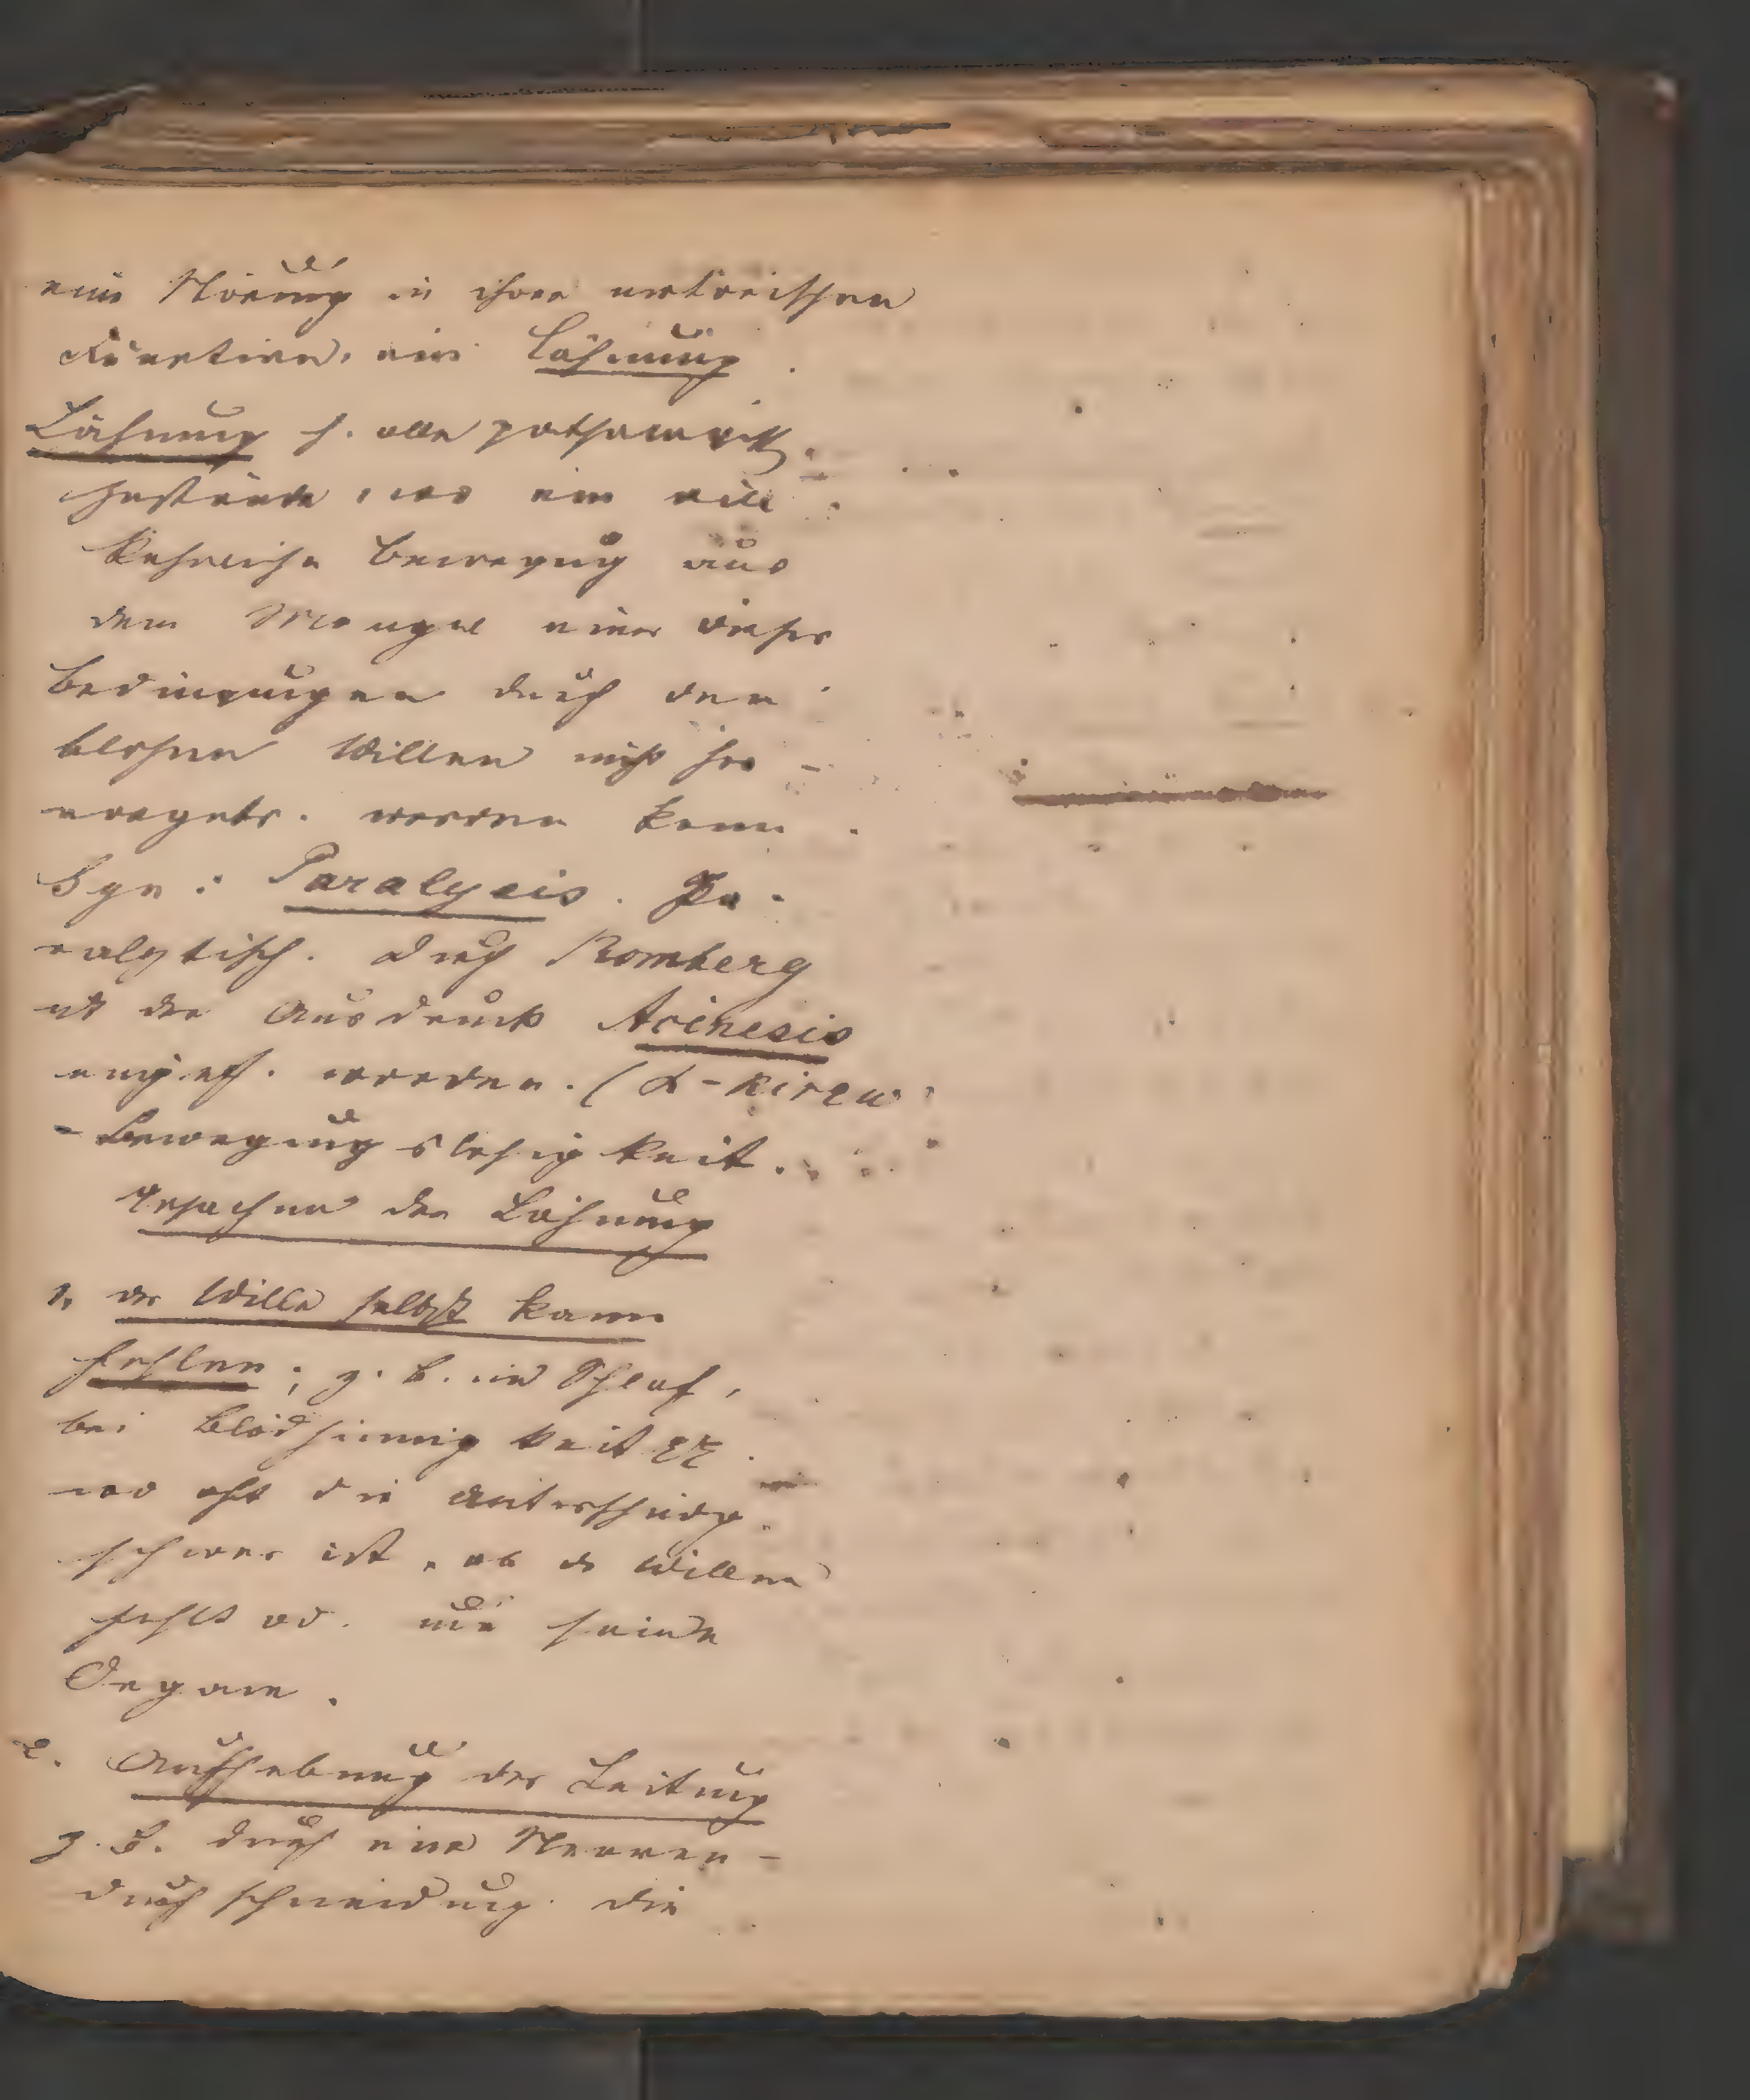 eine Störung in ihrer motorischen
Function, eine Lähmung.
Lähmung h. alle
Zustände, wo eine will
kührliche Bewegung aus
dem Mangel einer dieser
Bedingungen durch den
bloßen Willen nicht her-
vorgebr. werden kann.
Syn: Paralysis. Pa-
ralytisch. Durch Romberg
ist der Ausdruck Acinesis
eingef. worden. (α-κινεω
- Bewegungslosigkeit.
Ursachen der Lähmung
1. der Wille selbst kann
fehlen; z. B. im Schlaf,
bei Blödsinnigkeit
wo oft die Unterscheidg
schwer ist, ob der Willen
fehlt od. nur seine
Organe.
2. Aufhebung der Leitung
z. B. durch eine Nerven-
durchschneidung. Die